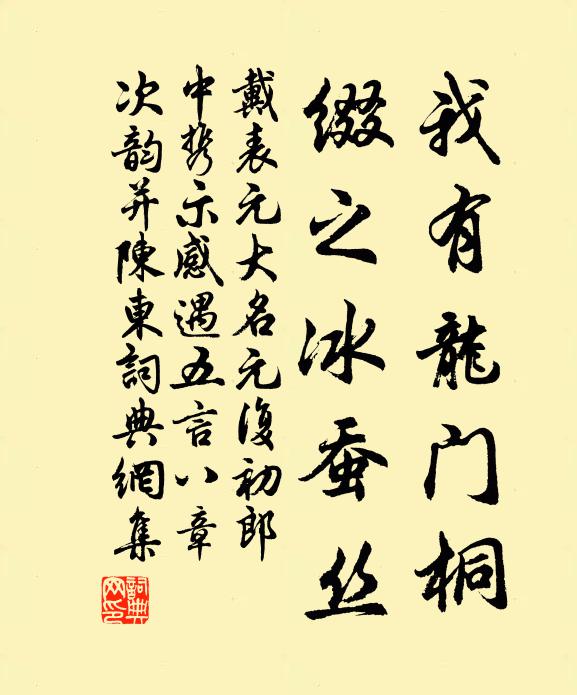 我有龍门桐
缀之冰蚕丝
戴表元大名元復初郎
中携示感遇五言八章
次韵并陳東詞典網集
詞典網印